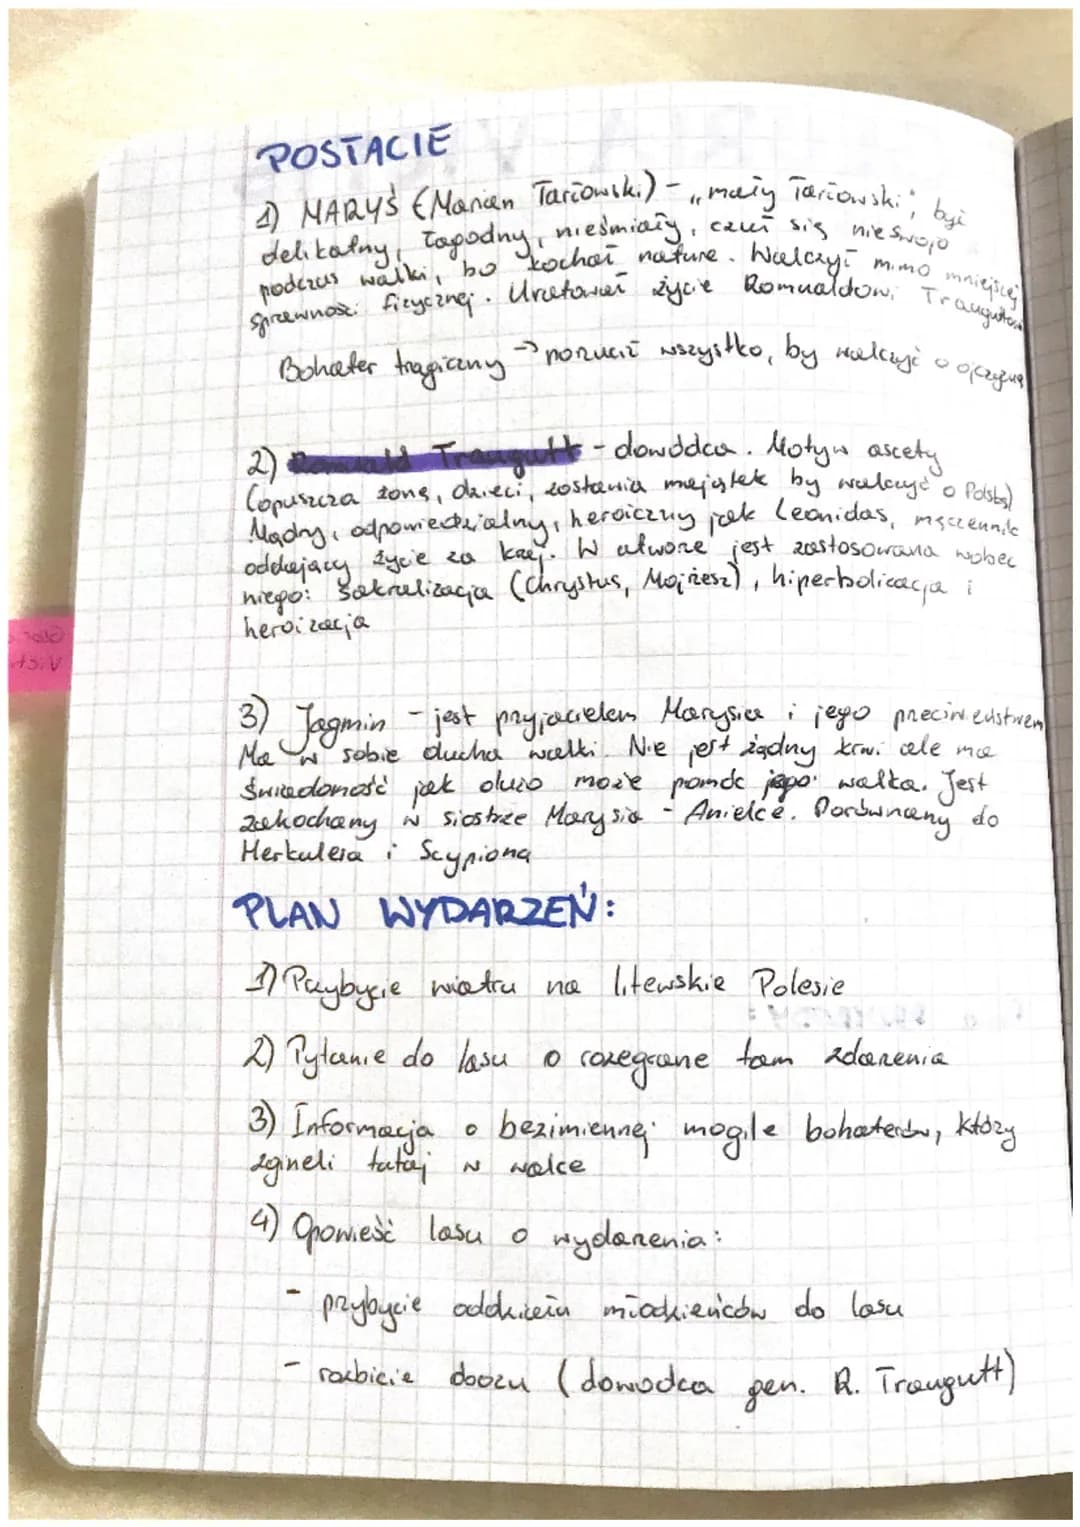 POSTACIE
1) MARYŚ (Marian Tarłowski) - "mały Tarłowski", był
delikatny, łagodny, nieśmiały, czuł się nieswojo
podczas walki, bo kochał naturę. Walczył mimo mniejszej
sprawności fizycznej. Uratował życie Romualdowi Trauguttowi
Bohater tragiczny → porzucił wszystko, by walczyć o ojczyznę
2) Romuald Traugutt - dowódca. Motyw ascety
(opuszcza żonę, dzieci, zostawia majątek by walczyć o Polskę)
Mądry, odpowiedzialny, heroiczny jak Leonidas, męczennik
oddający życie za kraj. W utworze jest zastosowana wobec
niego: Sakralizacja (Chrystus, Mojżesz), hiperbolizacja i
heroizacja
3) Jagmin - jest przyjacielem Marysia i jego przeciwieństwem
Ma w sobie ducha walki. Nie jest żądny krwi ale ma
świadomość jak dużo może pomóc jego walka. Jest
zakochany w siostrze Marysia - Anielce. Porównany do
Herkulesa i Scypiona
PLAN WYDARZEŃ:
1) Przybycie wiatru na litewskie Polesie
2) Pytanie do lasu o rozegrane tam zdarzenia
3) Informacja o bezimiennej mogile bohaterów, którzy
zgineli tutaj w walce
4) Opowieść lasu o wydarzenia:
- przybycie oddziału młodzieńców do lasu
- rozbicie obozu (dowodca gen. R. Traugutt)